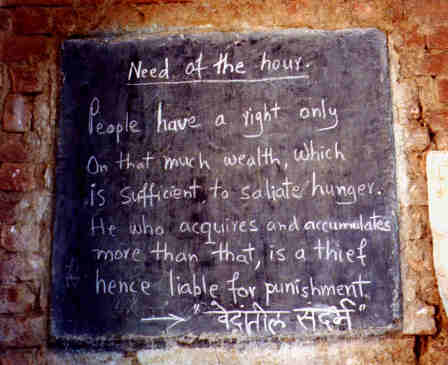 Need of the hour.
People have a right only
On that much wealth, which
is sufficient to satiate hunger.
He who acquires and accumulates
more than that, is a thief
hence liable for punishment.
→ "वेदातील संदर्भ"